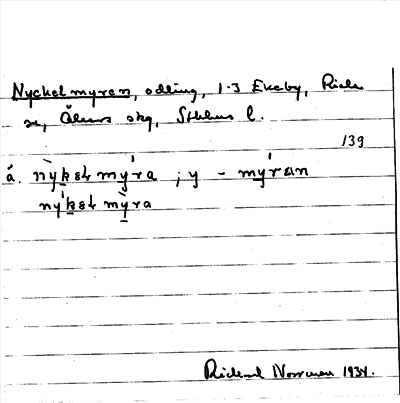 Nyckelmyren, odling, 1-3 Ekeby, Riala
sn, Åkers skg, Sthlms l.
139
å. nỳkeɫmýra ; y - mýrɛn
ný̀keɫmýra
Rickard Norrman 1934.